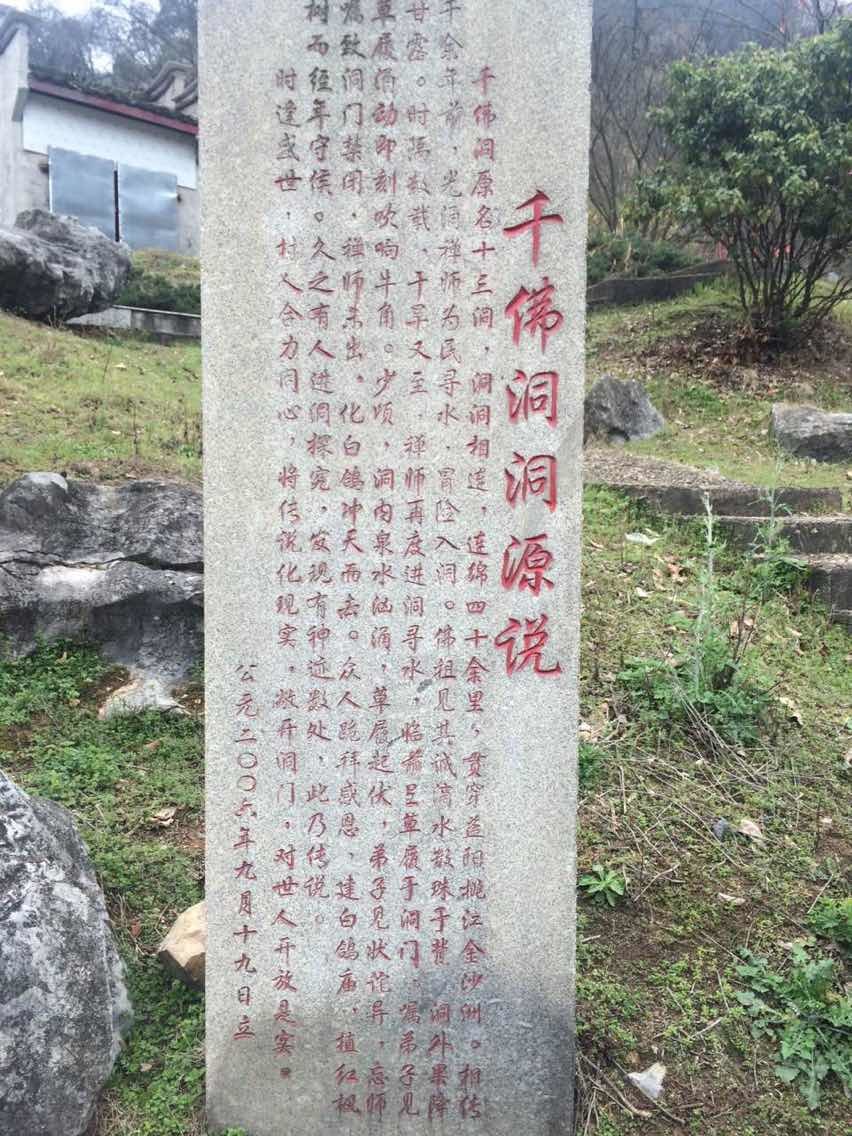 千佛洞洞源说
千佛洞原名十三洞，洞洞相连，连绵四十余里，贯穿益阳桃江金沙洲。相传
千余年前，光洞禅师为民寻水，冒险入洞。佛祖见其诚滴水散珠于贊，洞外果降
甘露。时隔数载，干旱又至，禅师再度进洞寻水，临前呈草履于洞门，嘱弟子见
草履涌动即刻吹响牛角。少顷，洞内泉水汹涌，草履起伏，弟子见状诧异，忘师
嘱致洞门禁闭，禅师未出。化白鸽冲天而去。众人跪拜感恩，建白鸽庙，植红枫
树而经年守侯。久之有人进洞探究，发现有神迹数处，此乃传说。
时逢盛世，村人合力同心，将传说化现实，敞开洞门，对世人开放是实。
公元二〇〇六年九月十九日立